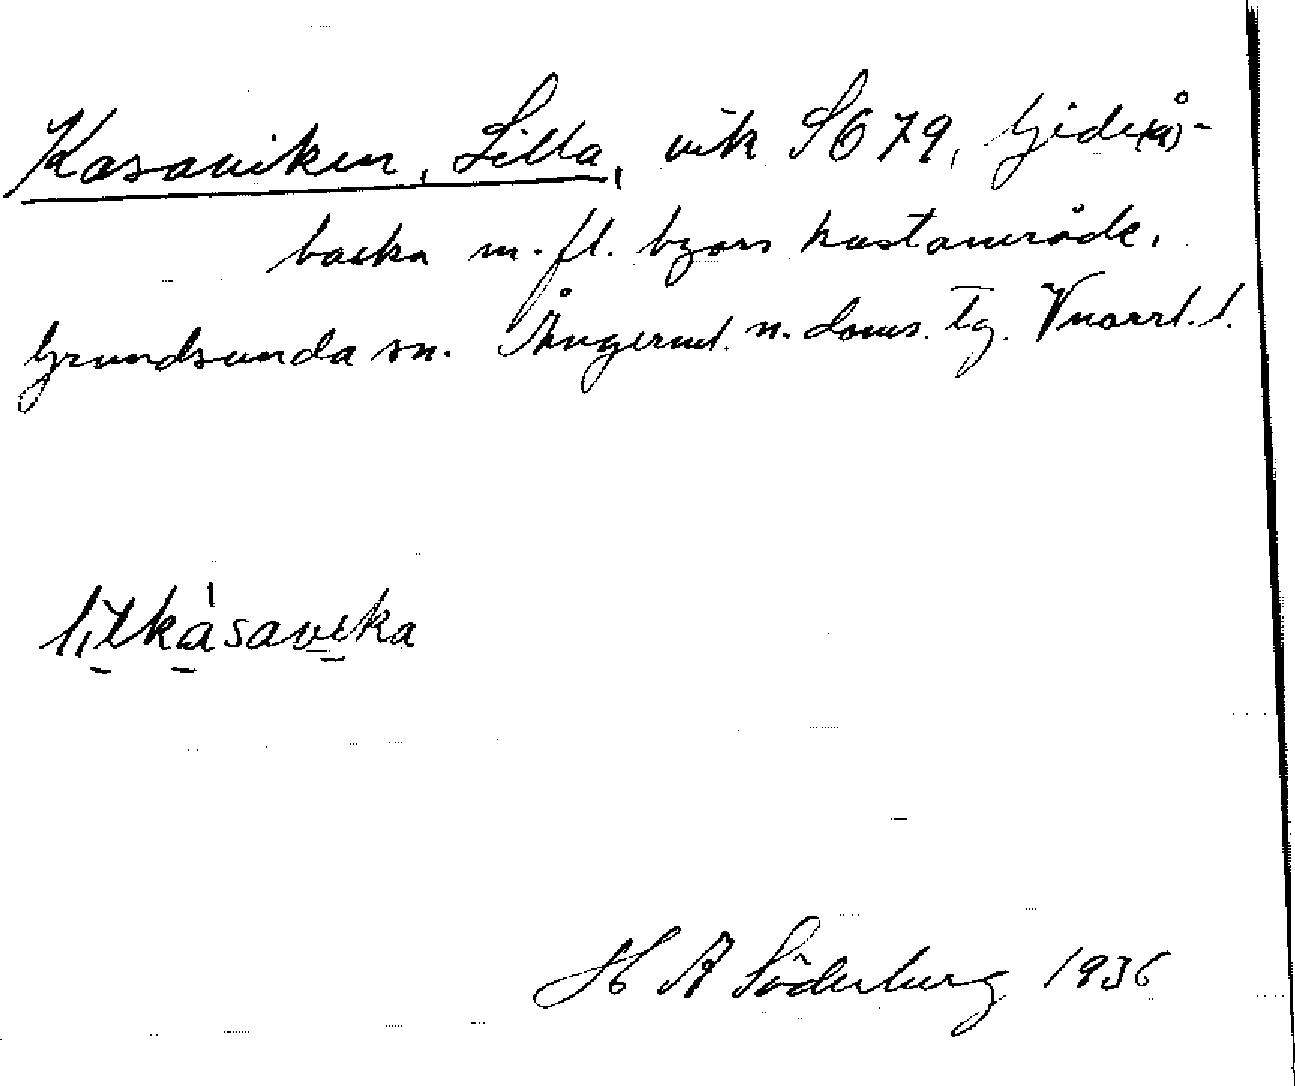 Kasaviken, Lilla, vik SO 79, Gide(å)-
backa m. fl. byars kustområde.
Grundsunda sn. Ångerml. n. doms. Tg. Vnorrl. l.
litkàsavika
H A Söderberg 1936